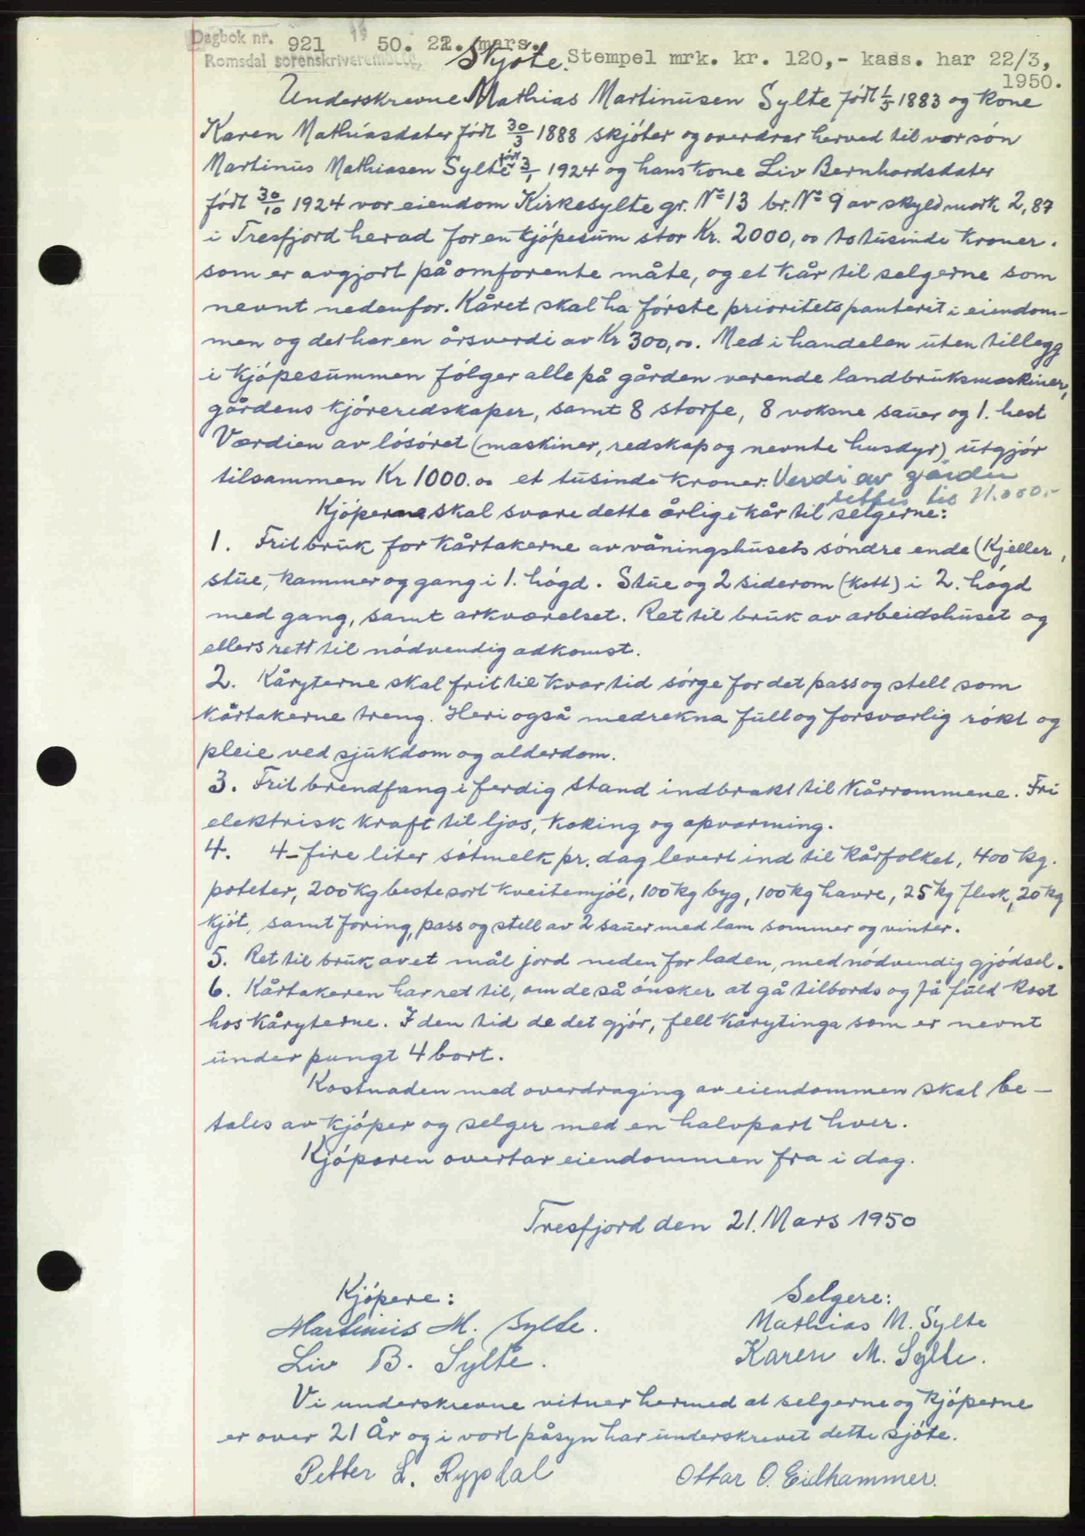 Dagbok nr. 921 19 50. 22. mars.
Romsdal sorenskriverembete, Skjöte. Stempel mrk. kr. 120,- kass. har 22/3,
1950.
Underskrevne Mathias Martinusen Sylte født 1/5 1883 og kone
Karen Mathiasdater født 30/3 1888 skjöter og overdrar herved til vor sön
Martinus Mathiasen Sylte født 3/1 1924 og hans kone Liv Bernhardsdater
født 30/10 1924 vor eiendom Kirkesylte gr. No 13 br. No 9 av skyldmark 2,87
i Tresfjord herad for en kjöpesum stor Kr. 2000,00 totusinde kroner.
som er avgjort på omforente måte, og et kår til selgerne som
nevnt nedenfor. Kåret skal ha förste prioritets panteret i eiendom-
men og det har en årsverdi av Kr 300,00. Med i handelen uten tillegg
i kjöpesummen fölger alle på gården verende landbruksmaskiner,
gårdens kjöreredskaper, samt 8 storfe, 8 voksne sauer og 1. hest
Værdien av lösöret (maskiner, redskap og nevnte husdyr) utgjör
tilsammen Kr 1000.00 et tusinde kroner. Verdi av gården
settes til 11.000.-
Kjöperne skal svare dette årlige kår til selgerne:
1. Frit bruk for kårtakerne av våningshusets söndre ende (Kjeller,
stue, kammer og gang i 1. högd. Stue og 2 siderom (kott) i 2. högd
med gang, samt arkværelset. Ret til bruk av arbeidshuset og
ellers rett til nödvendig adkomst.
2. Kåryterne skal frit til kvar tid sörge for det pass og stell som
kårtakerne treng. Heri også medrekna full og forsvarlig rökt og
pleie ved sjukdom og alderdom.
3. Frit brendfang i ferdig stand indbrakt til kårrommene. Fri
elektrisk kraft til ljos, koking og opvarming.
4. 4- fire liter sötmelk pr. dag levert ind til kårfolket, 400 kg.
poteter, 200 kg beste sort kveitemjöl, 100 kg byg, 100 kg havre, 25 kg flesk, 20 kg
kjöt, samt foring, pass og stell av 2 sauer med lam sommer og vinter.
5. Ret til bruk av et mål jord neden for laden, med nödvendig gjödsel.
6. Kårtakeren har ret til, om de så önsker at gå tilbords og få fuld kost
hos kåryterne. I den tid de det gjör, fell kårytinga som er nevnt
under pungt 4 bort.
Kostnaden med overdraging av eiendommen skal be-
tales av kjöper og selger med en halvpart hver.
Kjöperen overtar eiendommen fra i dag.
Tresfjord den 21. Mars 1950
Kjöpere: Selgere:
Martinus M. Sylte. Mathias M. Sylte
Liv B. Sylte. Karen M. Sylte.
Vi underskrevne vitner hermed at selgerne og kjöperne
er over 21 År og i vort påsyn har underskrevet dette sjöte.
Petter L. Rypdal Ottar O. Eidhammer.